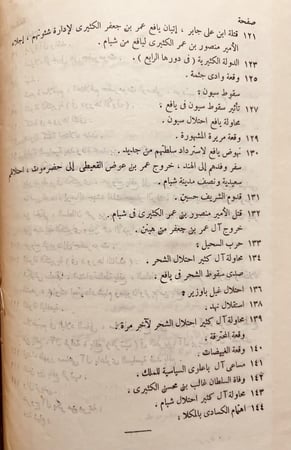 صفحة
١٢١ قتلة ابن على جابر ، إتيان يافع عمر بن جعفر الكثيرى لإدارة شئونهم ، إجلاء
الأمير منصور بن عمر الكثيرى ليافع من شبام .
١٢٣ الدولة الكثيرية ( فى دورها الرابع ) .
١٢٥ وقعة وادى
سقوط سيون :
١٢٧ تأثير سقوط سيون فى يافع .
محاولة يافع احتلال سيون .
١٢٩ وقعة مريرة المشهورة .
١٣٠ نهوض يافع لاسترداد سلطتهم من جديد .
سفر وفدهم إلى الهند ، خروج عمر بن عوض القعيطى إلى حضرموت ،
سعيدية ونصف مدينة شبام .
١٣١ قدوم الشريف حسين .
١٣٢ قتل الأمير منصور بنى عمر الكثيرى فى شبام .
خروج آل عمر بن جعفر من هينن .
١٣٣ حرب السحيل :
١٣٤ محاولة آل كثير احتلال الشحر .
صدى سقوط الشحر فى يافع .
١٣٦ احتلال غيل باوزير :
١٣٨ استقلال نهد .
١٣٩ محاولة آل كثير احتلال الشحر لآخر مرة :
وقعة المحترقة .
١٤٠ وقعة الغييضات .
١٤١ مساعى آل باعلوى السياسية للملك .
١٤٢ وفاة السلطان غالب بنى محسن الكثيرى .
١٤٣ محاولة آل كثير احتلال شبام .
١٤٤ اهتمام الكسادى بالمكلا :